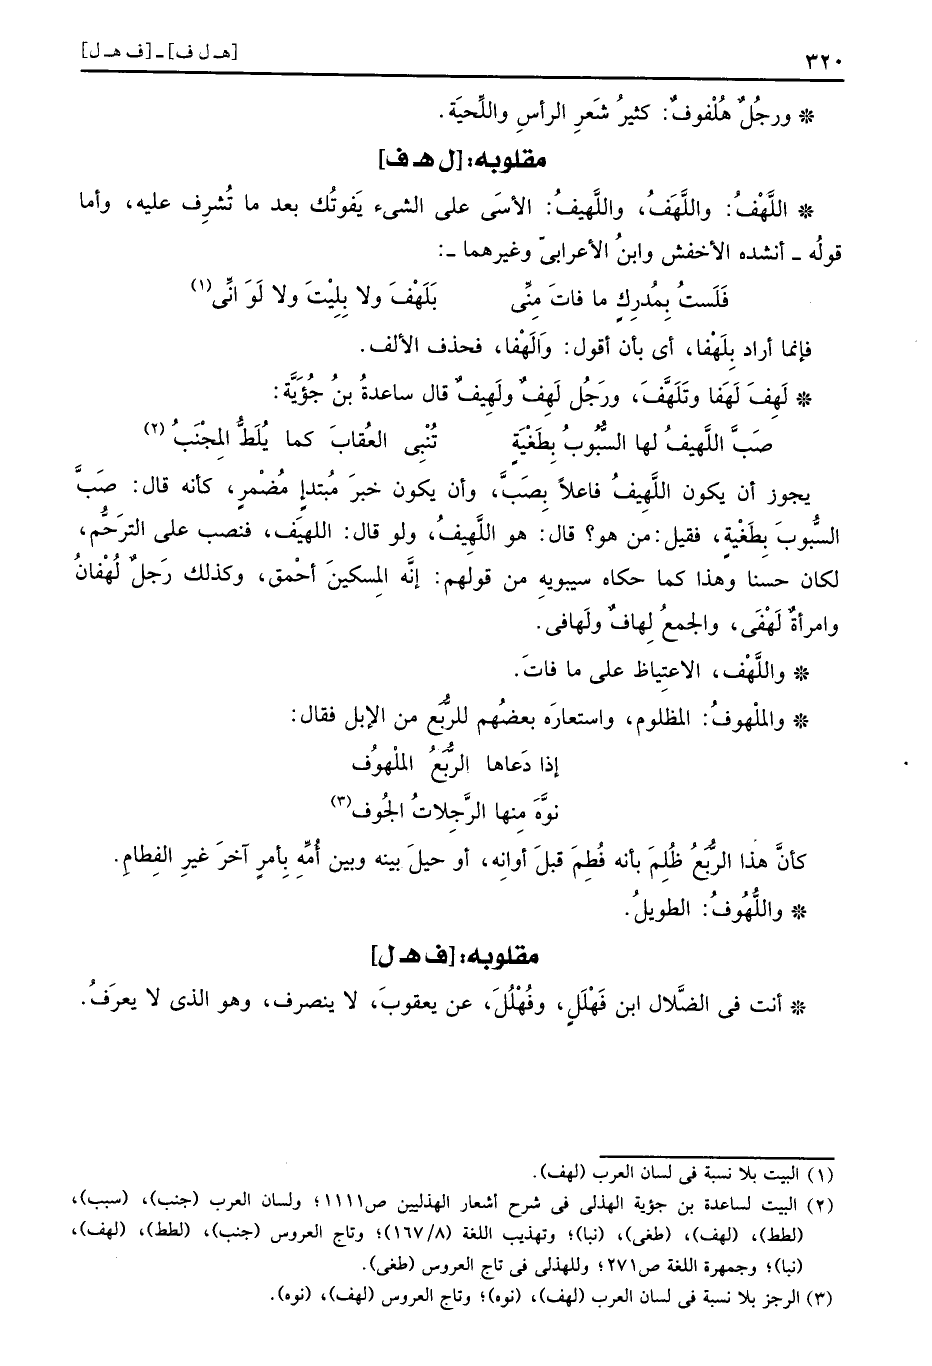 [هـ ل ف] ـ [ف هـ ل]
٣٢٠
* ورجُلٌ هُلْفوفٌ: كثيرُ شَعَرِ الرأسِ واللِّحيَة.
مقلوبه: [ل هـ ف]
* اللَّهْفُ: واللَّهَفُ، واللَّهيفُ: الأسَى على الشىء يَفوتُك بعد ما تُشرِف عليه، وأما
قولُه ـ أنشده الأخفش وابنُ الأعرابىّ وغيرهما ـ:
فَلَستُ بِمُدرِكٍ ما فاتَ مِنِّى بَلَهْفَ ولا بِلِيْتَ ولا لَوَ انِّى(١)
فإنما أراد بِلَهْفا، أى بأن أقول: وَالَهْفا، فحذف الألف.
* لَهِفَ لَهَفا وتَلَهَّفَ، ورَجُل لَهِفٌ ولَهِيفٌ قال ساعدةُ بنُ جُؤَيَّة:
صَبَّ اللَّهيفُ لها السُّبُوبُ بِطَغْيَةٍ تُنْبِى العُقابَ كما يُلَطُّ المِجْنَبُ(٢)
يجوز أن يكون اللَّهيفُ فاعلاً بِصَبَّ، وأن يكون خبرَ مُبتدإ مُضْمرٍ، كأنه قال: صَبَّ
السُّبوبَ بِطَغْيةٍ، فقيل: من هو؟ قال: هو اللَّهيفُ، ولو قال: اللهيَف، فنصب على الترَحُّم،
لكان حسنا وهذا كما حكاه سيبويهِ من قولهم: إنَّه المِسكينَ أحْمق، وكذلك رَجلٌ لُهْفانُ
وامرأةٌ لَهْفَى، والجمعُ لِهافٌ ولَهافى.
* واللَّهْف، الاغتِياظ على ما فاتَ.
* والملْهوفُ: المظلوم، واستعارَه بعضُهم للرُّبَع من الإبل فقال:
إذا دَعاها الرُّبَعُ الملْهوُف
نوَّهَ مِنها الزَّجِلاتُ الجُوف(٣)
كأنَّ هذا الرُّبَعُ ظُلِمَ بأنه فُطِمَ قبلَ أوانِه، أو حيلَ بينه وبين أُمِّه بِأمرٍ آخرَ غيرِ الفِطامِ.
* واللُّهُوفُ: الطويلُ.
مقلوبه: [ف هـ ل]
* أنت فى الضَّلال ابن فَهْلَلٍ، وفُهْلُلَ، عن يعقوبَ، لا ينصرف، وهو الذى لا يعرَفُ.
(١) البيت بلا نسبة فى لسان العرب (لهف).
(٢) البيت لساعدة بن جؤية الهذلى فى شرح أشعار الهذليين ص١١١١؛ ولسان العرب (جنب)، (سبب)،
(لطط)، (لهف)، (طغى)، (نبا)؛ وتهذيب اللغة (١٦٧/٨)؛ وتاج العروس (جنب)، (لطط)، (لهف)،
(نبا)؛ وجمهرة اللغة ص٢٧١؛ وللهذلى فى تاج العروس (طغى).
(٣) الرجز بلا نسبة فى لسان العرب (لهف)، (نوه)؛ وتاج العروس (لهف)، (نوه).